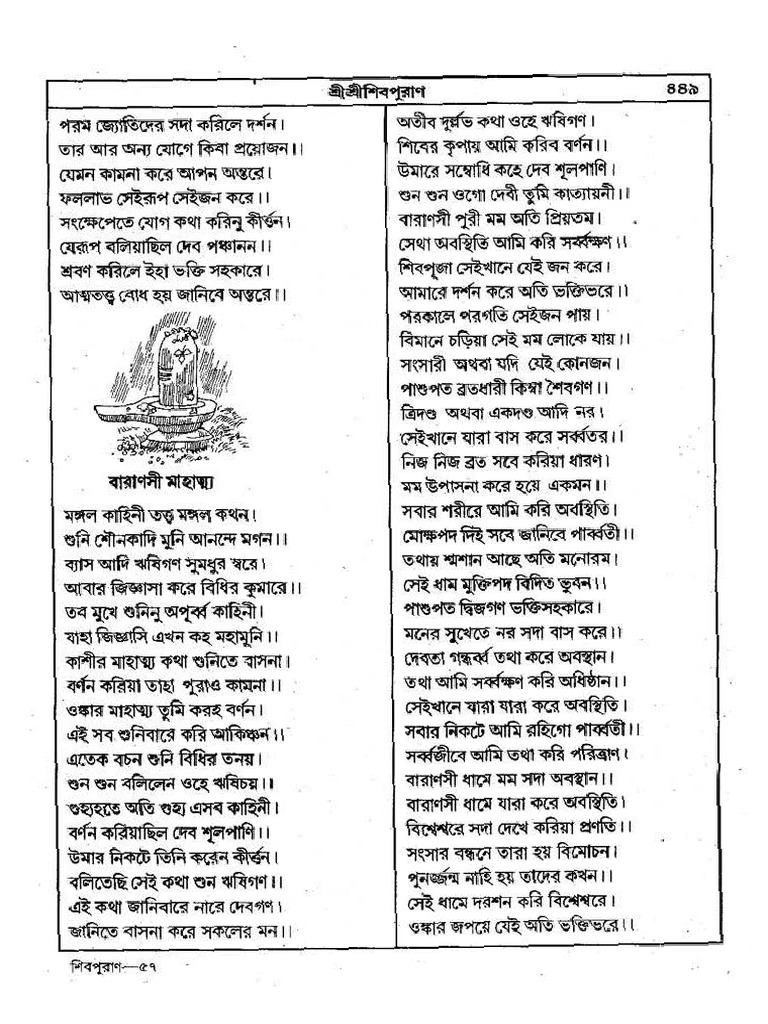 শ্রীশ্রীশিবপুরাণ
৪৪৯
পরম জ্যোতিদের সদা করিলে দর্শন।
তার আর অন্য যোগে কিবা প্রয়োজন।।
যেমন কামনা করে আপন অন্তরে।
ফললাভ সেইরূপ সেইজন করে।।
সংক্ষেপেতে যোগ কথা করিনু কীর্ত্তন।
যেরূপ বলিয়াছিল দেব পঞ্চানন।।
শ্রবণ করিলে ইহা ভক্তি সহকারে।
আত্মতত্ত্ব বোধ হয় জানিবে অন্তরে।।
বারাণসী মাহাত্ম্য
মঙ্গল কাহিনী তত্ত্ব মঙ্গল কথন।
শুনি শৌনকাদি মুনি আনন্দে মগন।।
ব্যাস আদি ঋষিগণ সুমধুর স্বরে।
আবার জিজ্ঞাসা করে বিধির কুমারে।।
তব মুখে শুনিনু অপূর্ব্ব কাহিনী।
যাহা জিজ্ঞাসি এখন কহ মহামুনি।।
কাশীর মাহাত্ম্য কথা শুনিতে বাসনা।
বর্ণন করিয়া তাহা পুরাও কামনা।।
ওঙ্কার মাহাত্ম্য তুমি করহ বর্ণন।
এই সব শুনিবারে করি আকিঞ্চন।।
এতেক বচন শুনি বিধির তনয়।
শুন শুন বলিলেন ওহে ঋষিচয়।।
গুহ্যহতে অতি গুহ্য এসব কাহিনী।
বর্ণন করিয়াছিল দেব শূলপাণি।।
উমার নিকটে তিনি করেন কীর্ত্তন।
বলিতেছি সেই কথা শুন ঋষিগণ।।
এই কথা জানিবারে নারে দেবগণ।
জানিতে বাসনা করে সকলের মন।।
অতীব দুর্ল্লভ কথা ওহে ঋষিগণ।
শিবের কৃপায় আমি করিব বর্ণন।।
উমারে সম্বোধি কহে দেব শূলপাণি।
শুন শুন ওগো দেবী তুমি কাত্যায়নী।।
বারাণসী পুরী মম অতি প্রিয়তম।
সেথা অবস্থিতি আমি করি সর্ব্বক্ষণ।।
শিবপূজা সেইখানে যেই জন করে।
আমারে দর্শন করে অতি ভক্তিভরে।।
পরকালে পরগতি সেইজন পায়।
বিমানে চড়িয়া সেই মম লোকে যায়।।
সংসারী অথবা যদি যেই কোনজন।
পাশুপত ব্রতধারী কিম্বা শৈবগণ।।
ত্রিদণ্ড অথবা একদণ্ড আদি নর।
সেইখানে যারা বাস করে সর্ব্বতর।।
নিজ নিজ ব্রত সবে করিয়া ধারণ।
মম উপাসনা করে হয়ে একমন।।
সবার শরীরে আমি করি অবস্থিতি।
মোক্ষপদ দিই সবে জানিবে পার্ব্বতী।।
তথায় শ্মশান আছে অতি মনোরম।
সেই ধাম মুক্তিপদ বিদিত ভুবন।।
পাশুপত দ্বিজগণ ভক্তিসহকারে।
মনের সুখেতে নর সদা বাস করে।।
দেবতা গন্ধর্ব্ব তথা করে অবস্থান।
তথা আমি সর্ব্বক্ষণ করি অধিষ্ঠান।।
সেইখানে যারা যারা করে অবস্থিতি।
সবার নিকটে আমি রহিগো পার্ব্বতী।।
সর্ব্বজীবে আমি তথা করি পরিত্রাণ।
বারাণসী ধামে মম সদা অবস্থান।।
বারাণসী ধামে যারা করে অবস্থিতি।
বিশ্বেশ্বরে সদা দেখে করিয়া প্রণতি।।
সংসার বন্ধনে তারা হয় বিমোচন।
পুনর্জ্জন্ম নাহি হয় তাদের কখন।।
সেই ধামে দরশন করি বিশ্বেশ্বরে।
ওঙ্কার জপয়ে যেই অতি ভক্তিভরে।।
শিবপুরাণ—৫৭